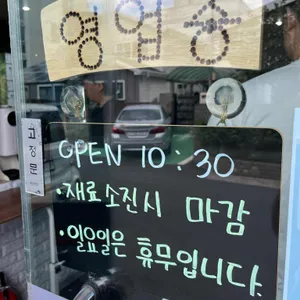 영업중
고정문
OPEN 10 : 30
• 재료소진시 마감
• 일요일은 휴무입니다.